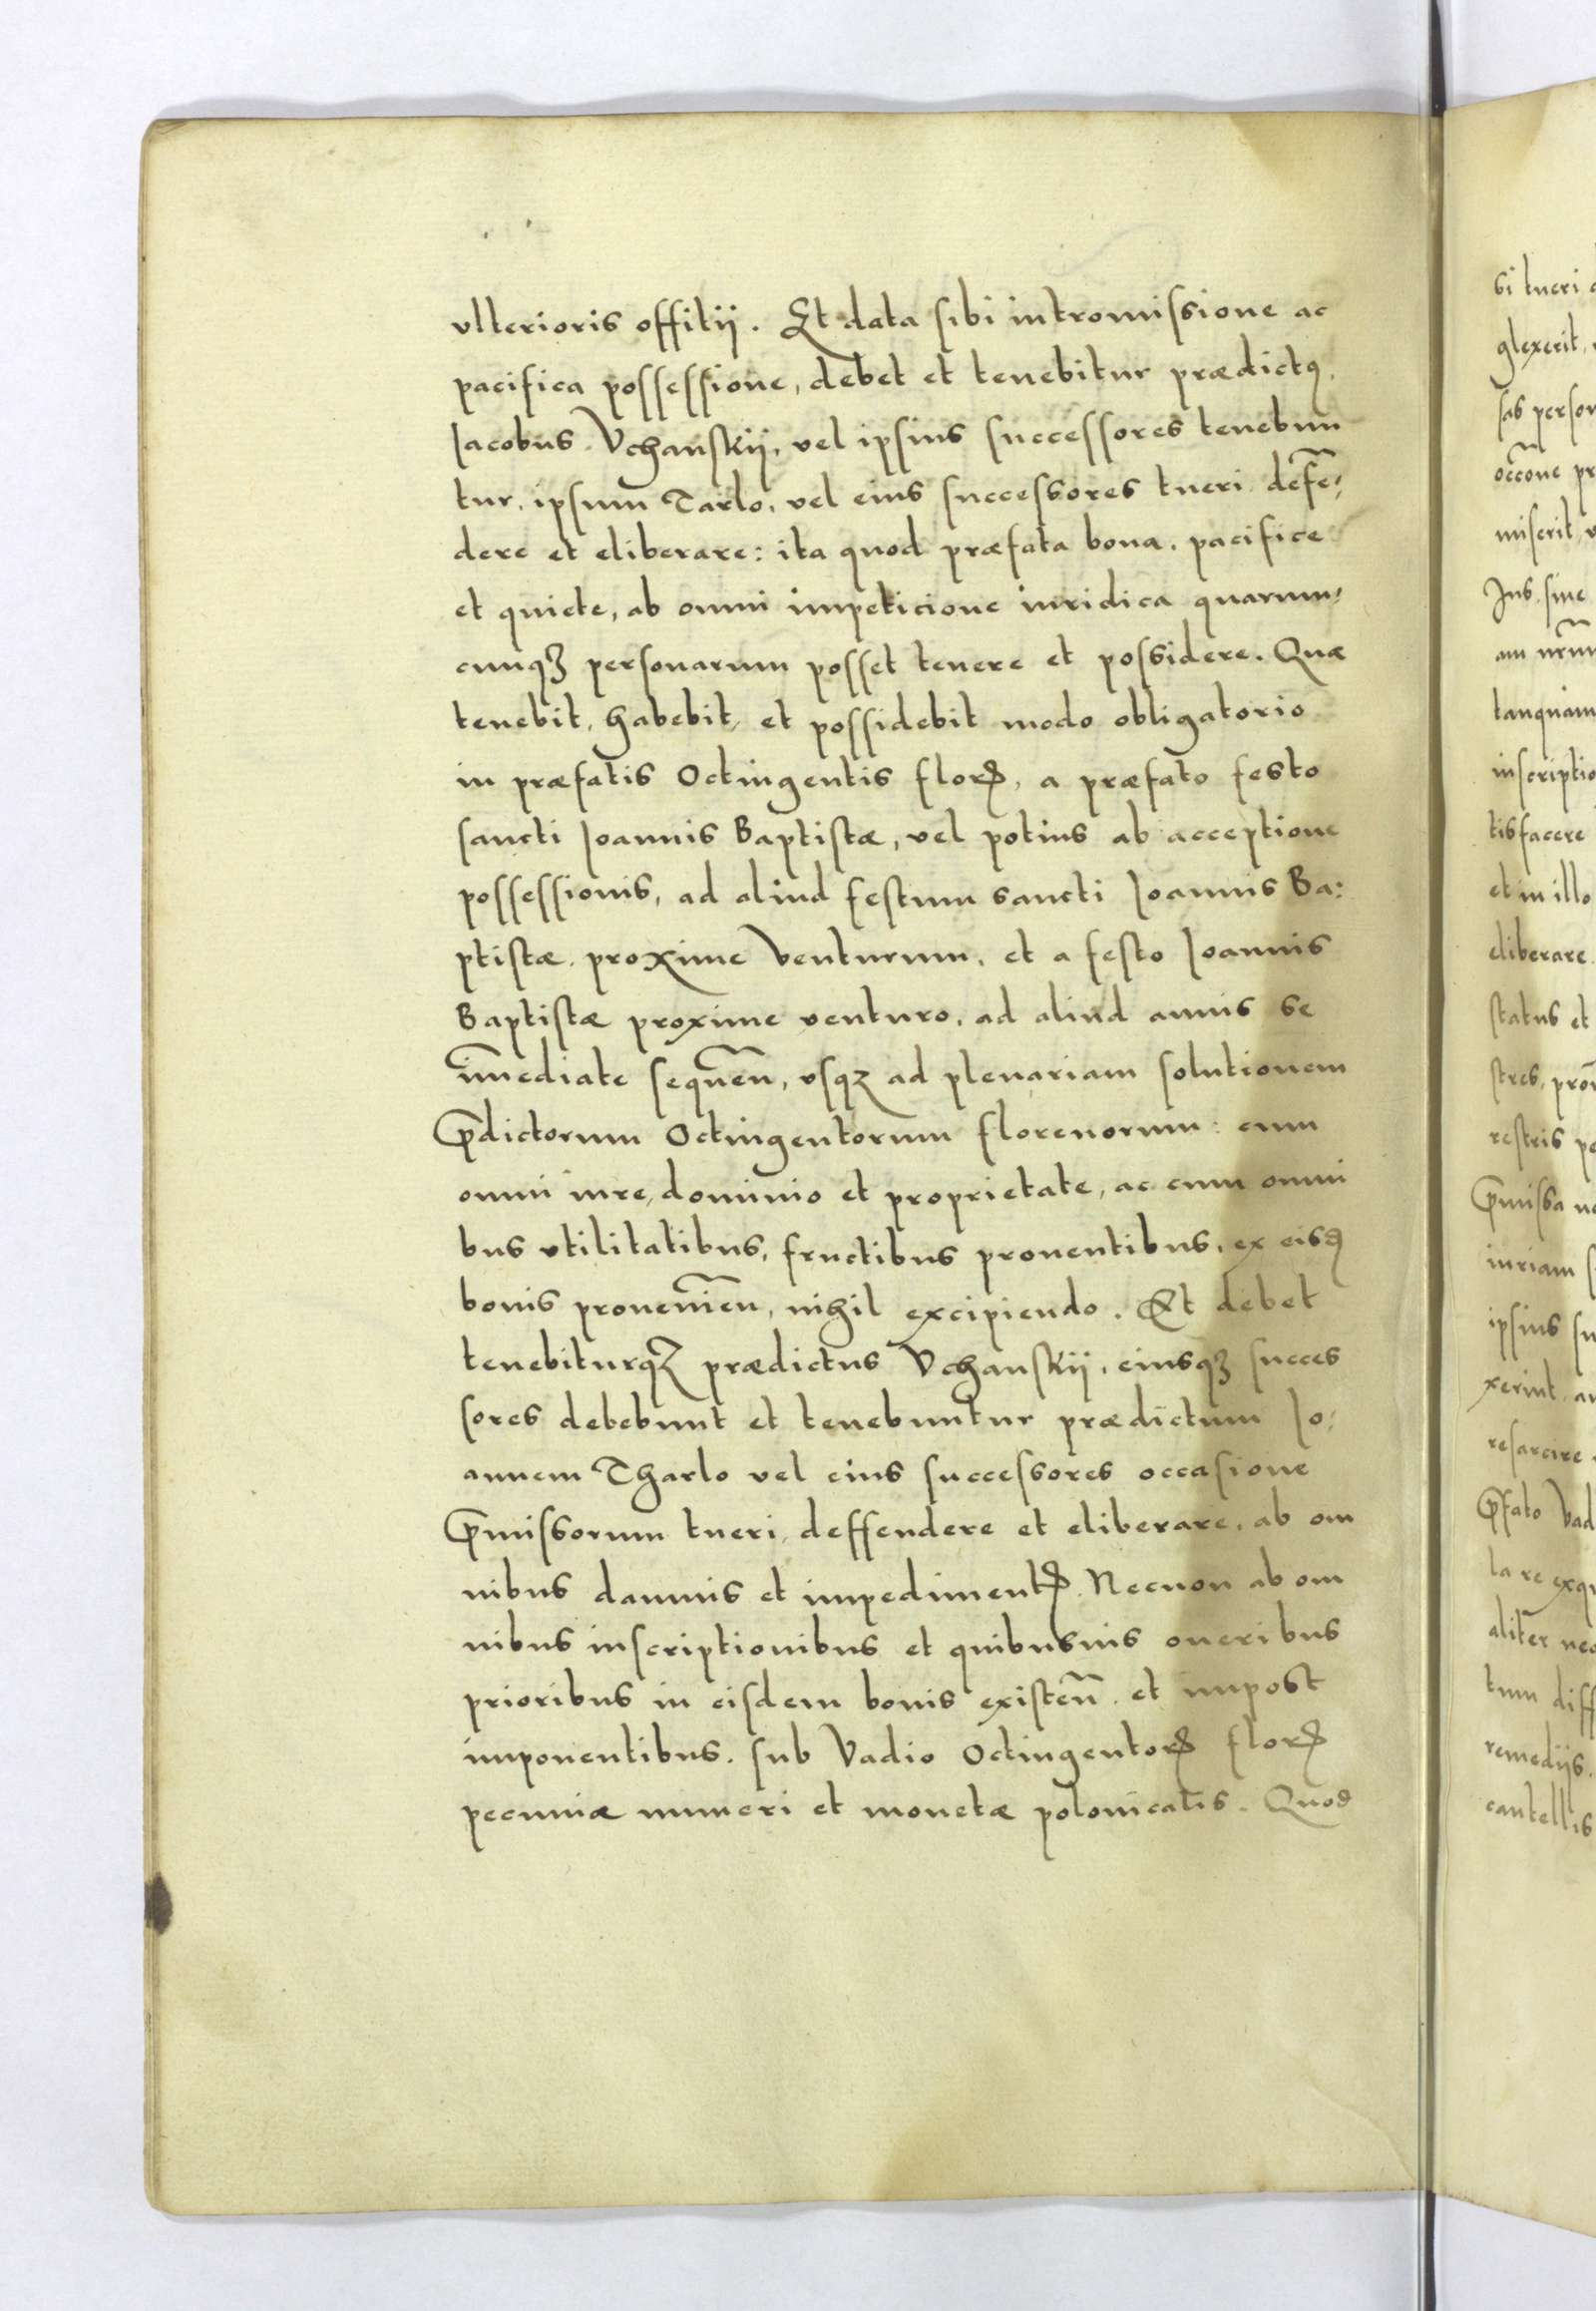 vlterioris offitij. Et data sibi intromissione ac
pacifica possessione, debet et tenebitur prædictꝰ.
Jacobus Vchanskij, vel ipsius successores tenebun
tur, ipsum Tarlo, vel eius successores tueri defẽ⸗
dere et eliberare: ita quod præfata bona, pacifice
et quiete, ab omni impeticione iuridica quarum⸗
cunqȝ personarum posset tenere et possidere. Quæ
tenebit, habebit, et possidebit modo obligatorio
in præfatis Octingentis florꝭ, a præfato festo
sancti Joannis Baptistæ, vel potius ab acceptione
possessionis, ad aliud festum sancti Joannis Ba:
ptistæ proxime venturum, et a festo Joannis
Baptistæ proxime venturo, ad aliud annis se
im̃ediate sequen̄, vsqȝ ad plenariam solutionem
p̄dictorum Octingentorum florenorum: cum
omni iure, dominio et proprietate, ac cum omni
bus vtilitatibus, fructibus prouentibus, ex eisdꝫ
bonis prouenien̄, nihil excipiendo. Et debet
tenebiturqȝ prædictus Vchanskij, eiusqȝ succes
sores debebunt et tenebuntur prædictum Jo⸗
annem Tharlo vel eius successores occasione
p̄missorum tueri, deffendere et eliberare, ab om
nibus damnis et impedimentꝭ. Necnon ab om
nibus inscriptionibus et quibusuis oneribus
prioribus in eisdem bonis existen̄. et impost
imponentibus. sub Vadio Octingentorꝭ florꝭ
pecuniæ numeri et monetæ polonicalis. Quod
bi tueri
glexerit,
sas person
occõne pr
miserit, v
Jus. siue
am nr̃m
tanquam
inscriptio
tisfacere
et in illo
eliberare.
status et
stres, pro
restris pe
p̄missa
iuriam
ipsius su
xerint au
resarcire
p̄fato Vad
la re exqu
alit̃er nec
tum diff
remedijs.
cautellis